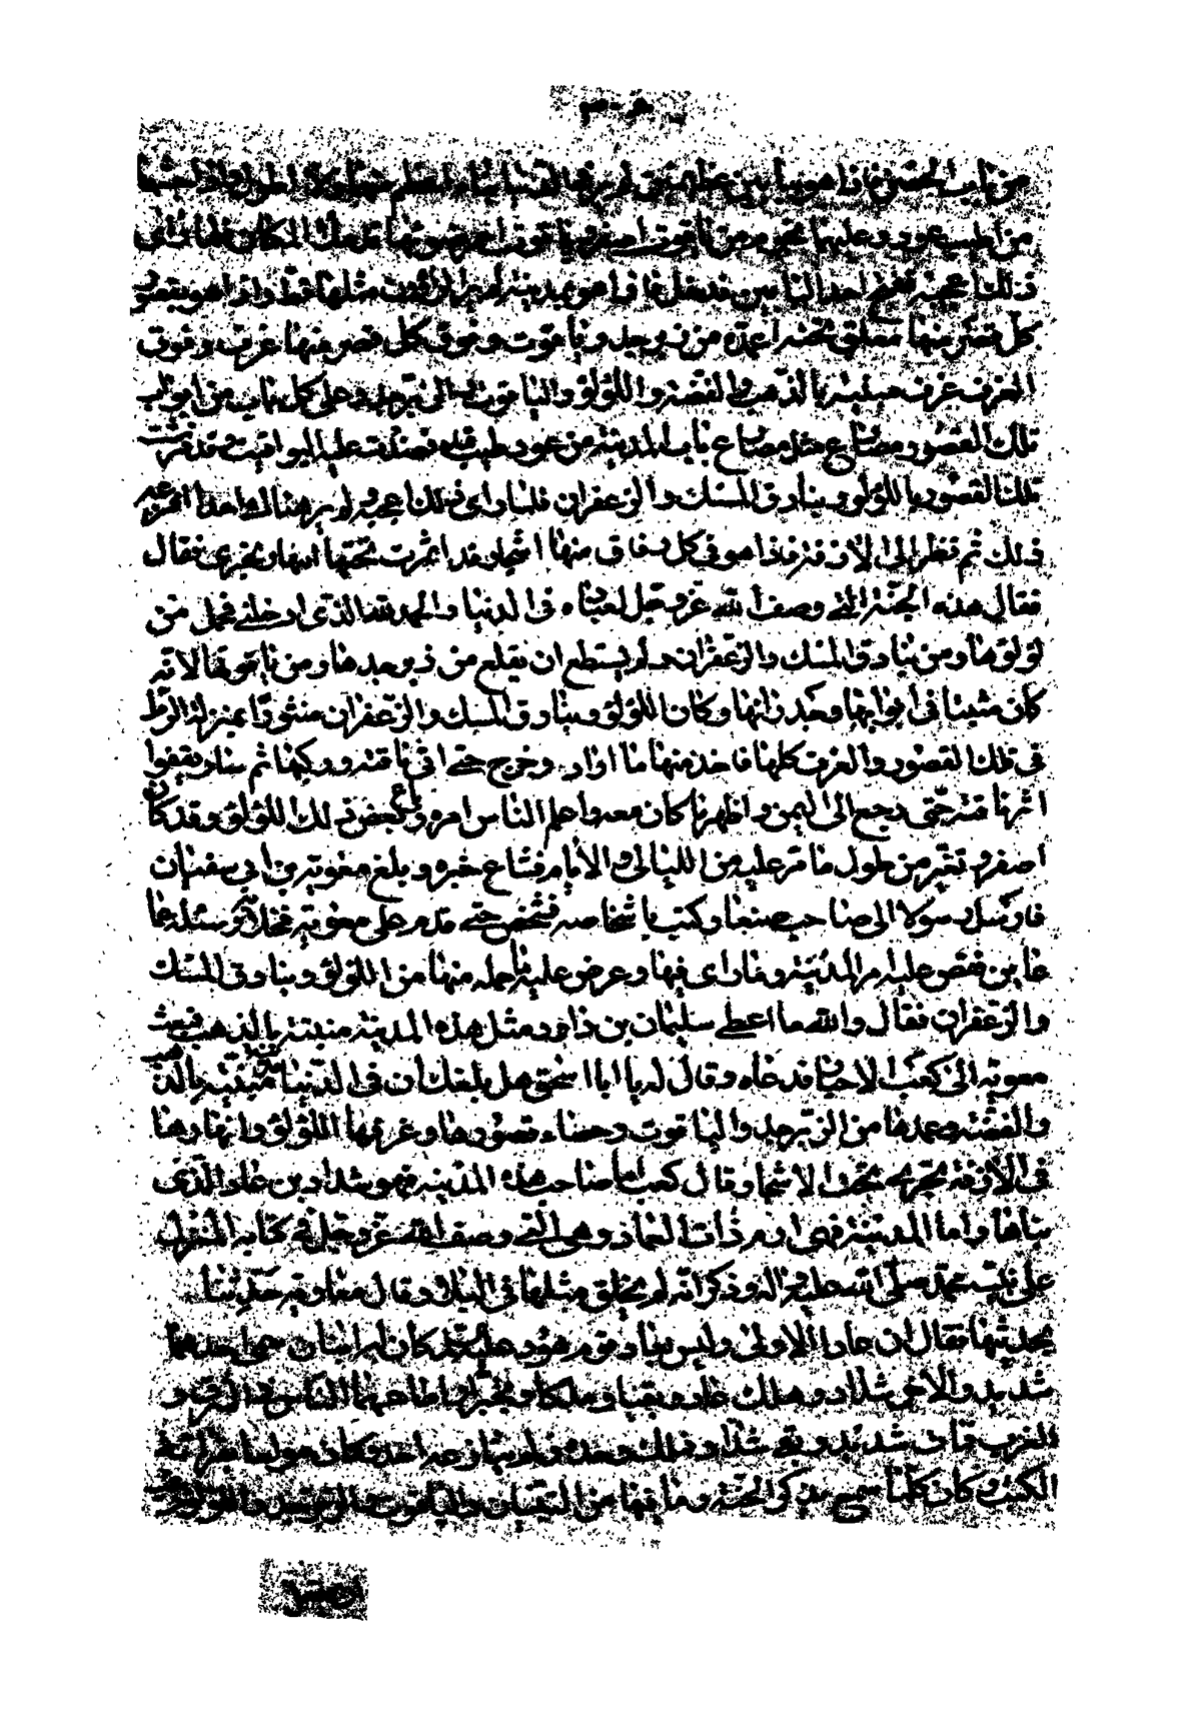 من باب الحصن فاذا هو ببابين عظيمين لم ير في الدنيا بناء اعظم منهما ولا اطول واذا خشبها
من اطيب عود وعليها نجوم من ياقوت اصفر وياقوت احمر ضوئها قد ملأ المكان فلما رأى
ذلك اعجبه ففتح احد البابين ودخل فاذا هو بمدينة لم ير الراؤن مثلها قط واذا هو بقصور
كل قصر منها معلق تحته اعمدة من زبرجد وياقوت وفوق كل قصر منها غرف وفوق
الغرف غرف مبنية بالذهب والفضة واللؤلؤ والياقوت والزبرجد وعلى كل باب من ابواب
تلك القصور مصراع مثل مصراع باب المدينة من عود طيب قد نضدت عليه اليواقيت وقد فرشت
تلك القصور باللؤلؤ وبنادق المسك والزعفران فلما رأى ذلك اعجبه ولم ير هناك احدا افزعه
ذلك ثم نظر الى الازقة فاذا هو في كل زقاق منها اشجار قد اثمرت تحتها انهار تجري فقال
فقال هذه الجنة التي وصف الله عز وجل لعباده في الدنيا والحمد لله الذي ادخلني فحمل من
لؤلؤها ومن بنادق المسك والزعفران ولم يستطع ان يقلع من زبرجدها ومن ياقوتها لانه
كان مثبتا في ابوابها وجدرانها وكان اللؤلؤ وبنادق المسك والزعفران منثورا بمنزلة الرمل
في تلك القصور والغرف كلها فاخذ منها ما اراد وخرج حتى اتى ناقته وركبها ثم سار يقفوا
اثر ناقته حتى رجع الى اليمن واظهر ما كان معه واعلم الناس امره وباع بعض ذلك اللؤلؤ وقد كان
اصفر وتغير من طول ما مر عليه من الليالي والايام فشاع خبره وبلغ معوية بن ابي سفيان
فارسل رسولا الى صاحب صنعا وكتب باشخاصه فشخص حتى قدم على معوية فخلا به وسئله عما
عاين فقص عليه امر المدينة وما رأى فيها وعرض عليه ما حمله منها من اللؤلؤ وبنادق المسك
والزعفران فقال والله ما اعطى سليمان بن داود مثل هذه المدينة مبنية بالذهب فبعث
معوية الى كعب الاحبار فدعاه وقال له يا ابا اسحق هل بلغك ان في الدنيا مدينة مبنية بالذهب
والفضة وعمدها من الزبرجد والياقوت وحصاء قصورها وغرفها اللؤلؤ وانهارها
في الازقة تجري تحت الاشجار قال كعب اما صاحب هذه المدينة فهو شداد بن عاد الذي
بناها واما المدينة فهي ارم ذات العماد وهي التي وصف الله عز وجل في كتابه المنزل
على نبيه محمد صلى الله عليه واله وذكر انه لم يخلق مثلها في البلاد قال معاوية حدثنا
بحديثها فقال ان عادا الاولى وليس بعاد قوم هود عليه السلام كان له ابنان سمى احدهما
شديد والاخر شداد وهلك عاد وبقيا وملكا وتجبرا واطاعهما الناس في الشرق و
الغرب فمات شديد وبقى شداد فملك وحده ولم ينازعه احد وكان مولعا بقرائة
الكتب وكان كلما سمع بذكر الجنة وما فيها من البنيان والياقوت والزبرجد واللؤلؤ